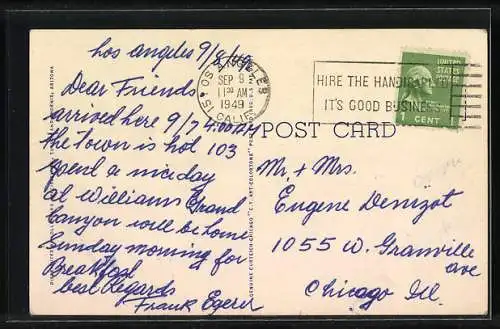 Los Angeles 9/9/49
Dear Friends
arrived here 9/7 4:00
the town is hot 103
spent a nice day
at Williams Grand
Canyon will be home
Sunday morning for
Breakfast
best Regards
Frank
LOS ANGELES
SEP 9
11 30 AM
1949
CALIF.
HIRE THE HANDICAPPED
IT'S GOOD BUSINESS
UNITED
STATES
POSTAGE
1 CENT
POST CARD
Mr + Mrs.
Eugene Denizot
1055 W. Granville
ave
Chicago Ill.
GENUINE CURTEICH-CHICAGO "C.T. ART-COLORTONE" POST